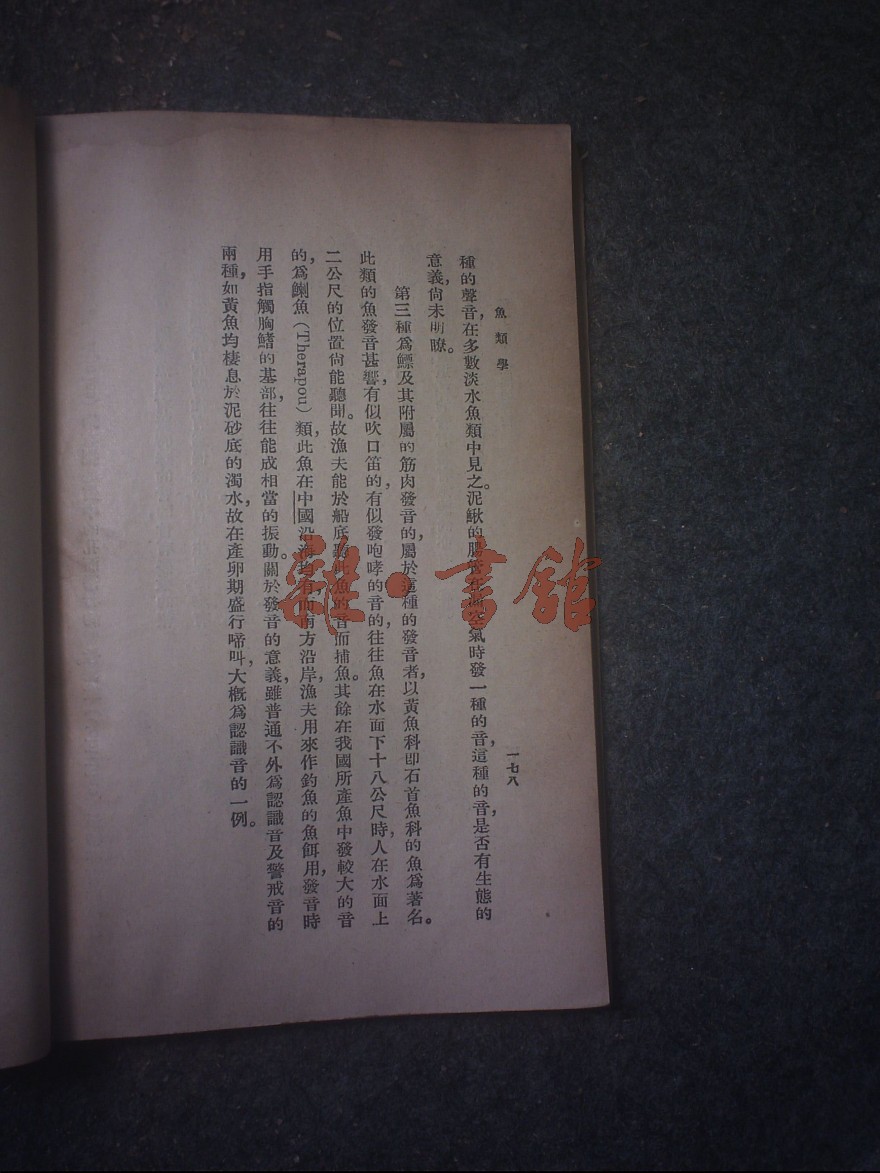 魚類學
一七八
種的聲音，在多數淡水魚類中見之。泥鰍的腸管在空氣時發一種的音，這種的音，是否有生態的
意義，尙未明瞭。
第三種爲鰾及其附屬的筋肉發音的，屬於這種的發音者，以黃魚科卽石首魚科的魚爲著名。
此類的魚發音甚響，有似吹口笛的，有似發咆哮的音的，往往魚在水面下十八公尺時，人在水面上
二公尺的位置尙能聽聞。故漁夫能於船底聽此魚的音而捕魚。其餘在我國所產魚中發較大的音
的，爲鯻魚（Therapou）類，此魚在中國沿海均有，而南方沿岸，漁夫用來作釣魚的魚餌用，發音時
用手指觸胸鰭的基部，往往能成相當的振動。關於發音的意義，雖普通不外爲認識音及警戒音的
兩種，如黃魚均棲息於泥砂底的濁水，故在產卵期盛行啼叫，大槪爲認識音的一例。
雜·書館